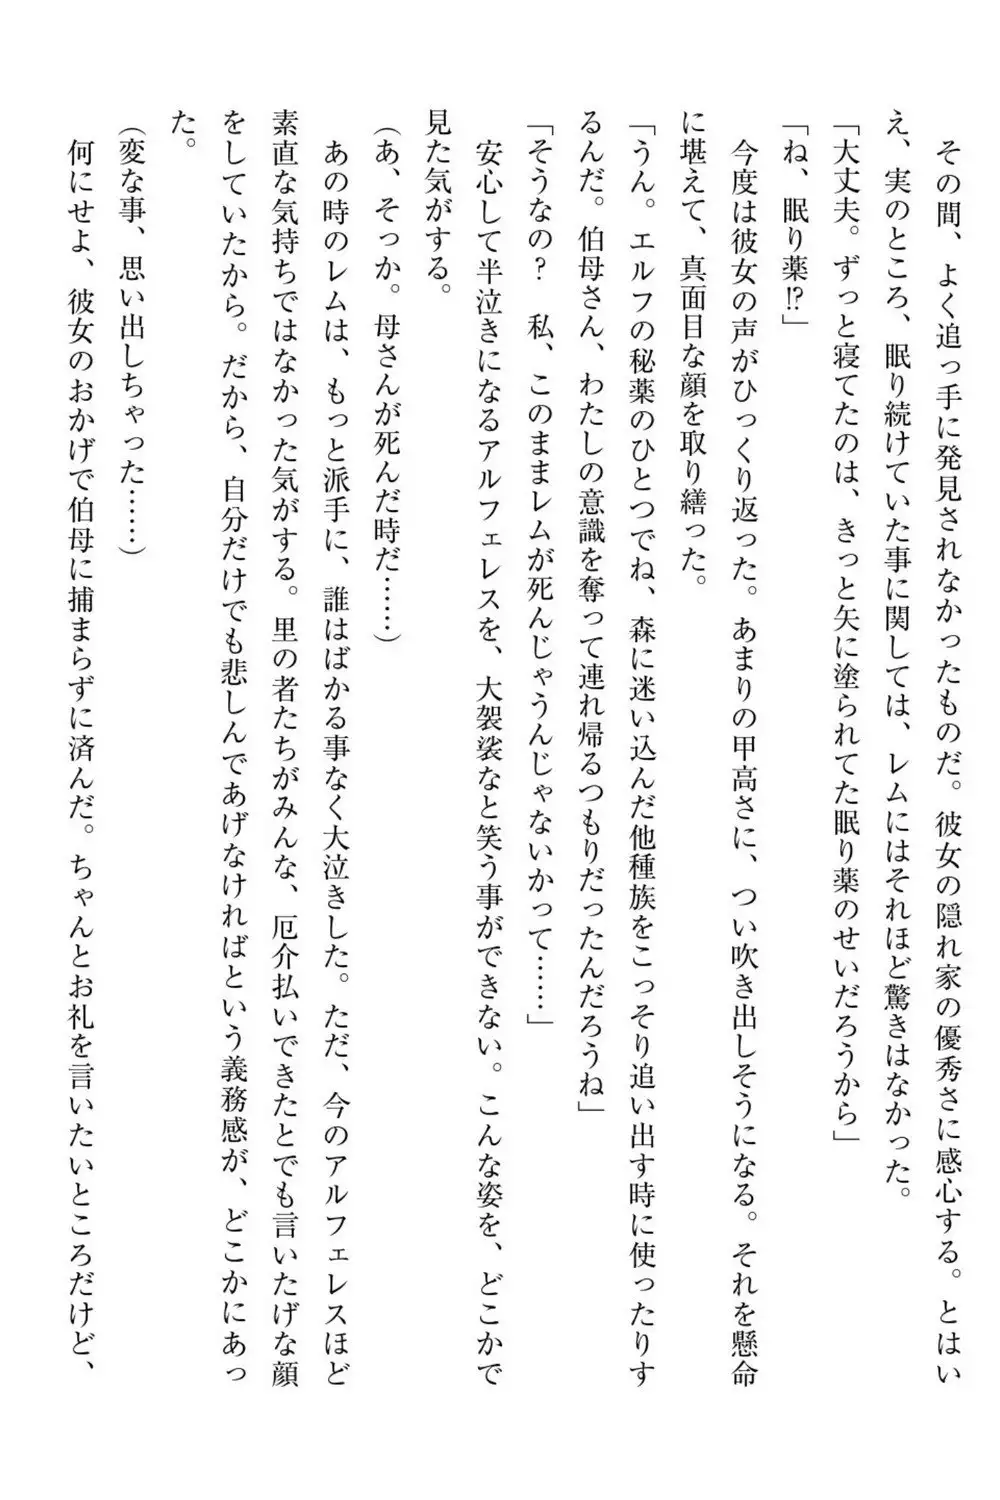 その間、よく追っ手に発見されなかったものだ。彼女の隠れ家の優秀さに感心する。とはい
え、実のところ、眠り続けていた事に関しては、レムにはそれほど驚きはなかった。
「大丈夫。ずっと寝てたのは、きっと矢に塗られてた眠り薬のせいだろうから」
「ね、眠り薬!?」
　今度は彼女の声がひっくり返った。あまりの甲高さに、つい吹き出しそうになる。それを懸命
に堪えて、真面目な顔を取り繕った。
「うん。エルフの秘薬のひとつでね、森に迷い込んだ他種族をこっそり追い出す時に使ったりす
るんだ。伯母さん、わたしの意識を奪って連れ帰るつもりだったんだろうね」
「そうなの？　私、このままレムが死んじゃうんじゃないかって……」
　安心して半泣きになるアルフェレスを、大袈裟なと笑う事ができない。こんな姿を、どこかで
見た気がする。
（あ、そっか。母さんが死んだ時だ……）
　あの時のレムは、もっと派手に、誰はばかる事なく大泣きした。ただ、今のアルフェレスほど
素直な気持ちではなかった気がする。里の者たちがみんな、厄介払いできたとでも言いたげな顔
をしていたから。だから、自分だけでも悲しんであげなければという義務感が、どこかにあっ
た。
（変な事、思い出しちゃった……）
　何にせよ、彼女のおかげで伯母に捕まらずに済んだ。ちゃんとお礼を言いたいところだけど、